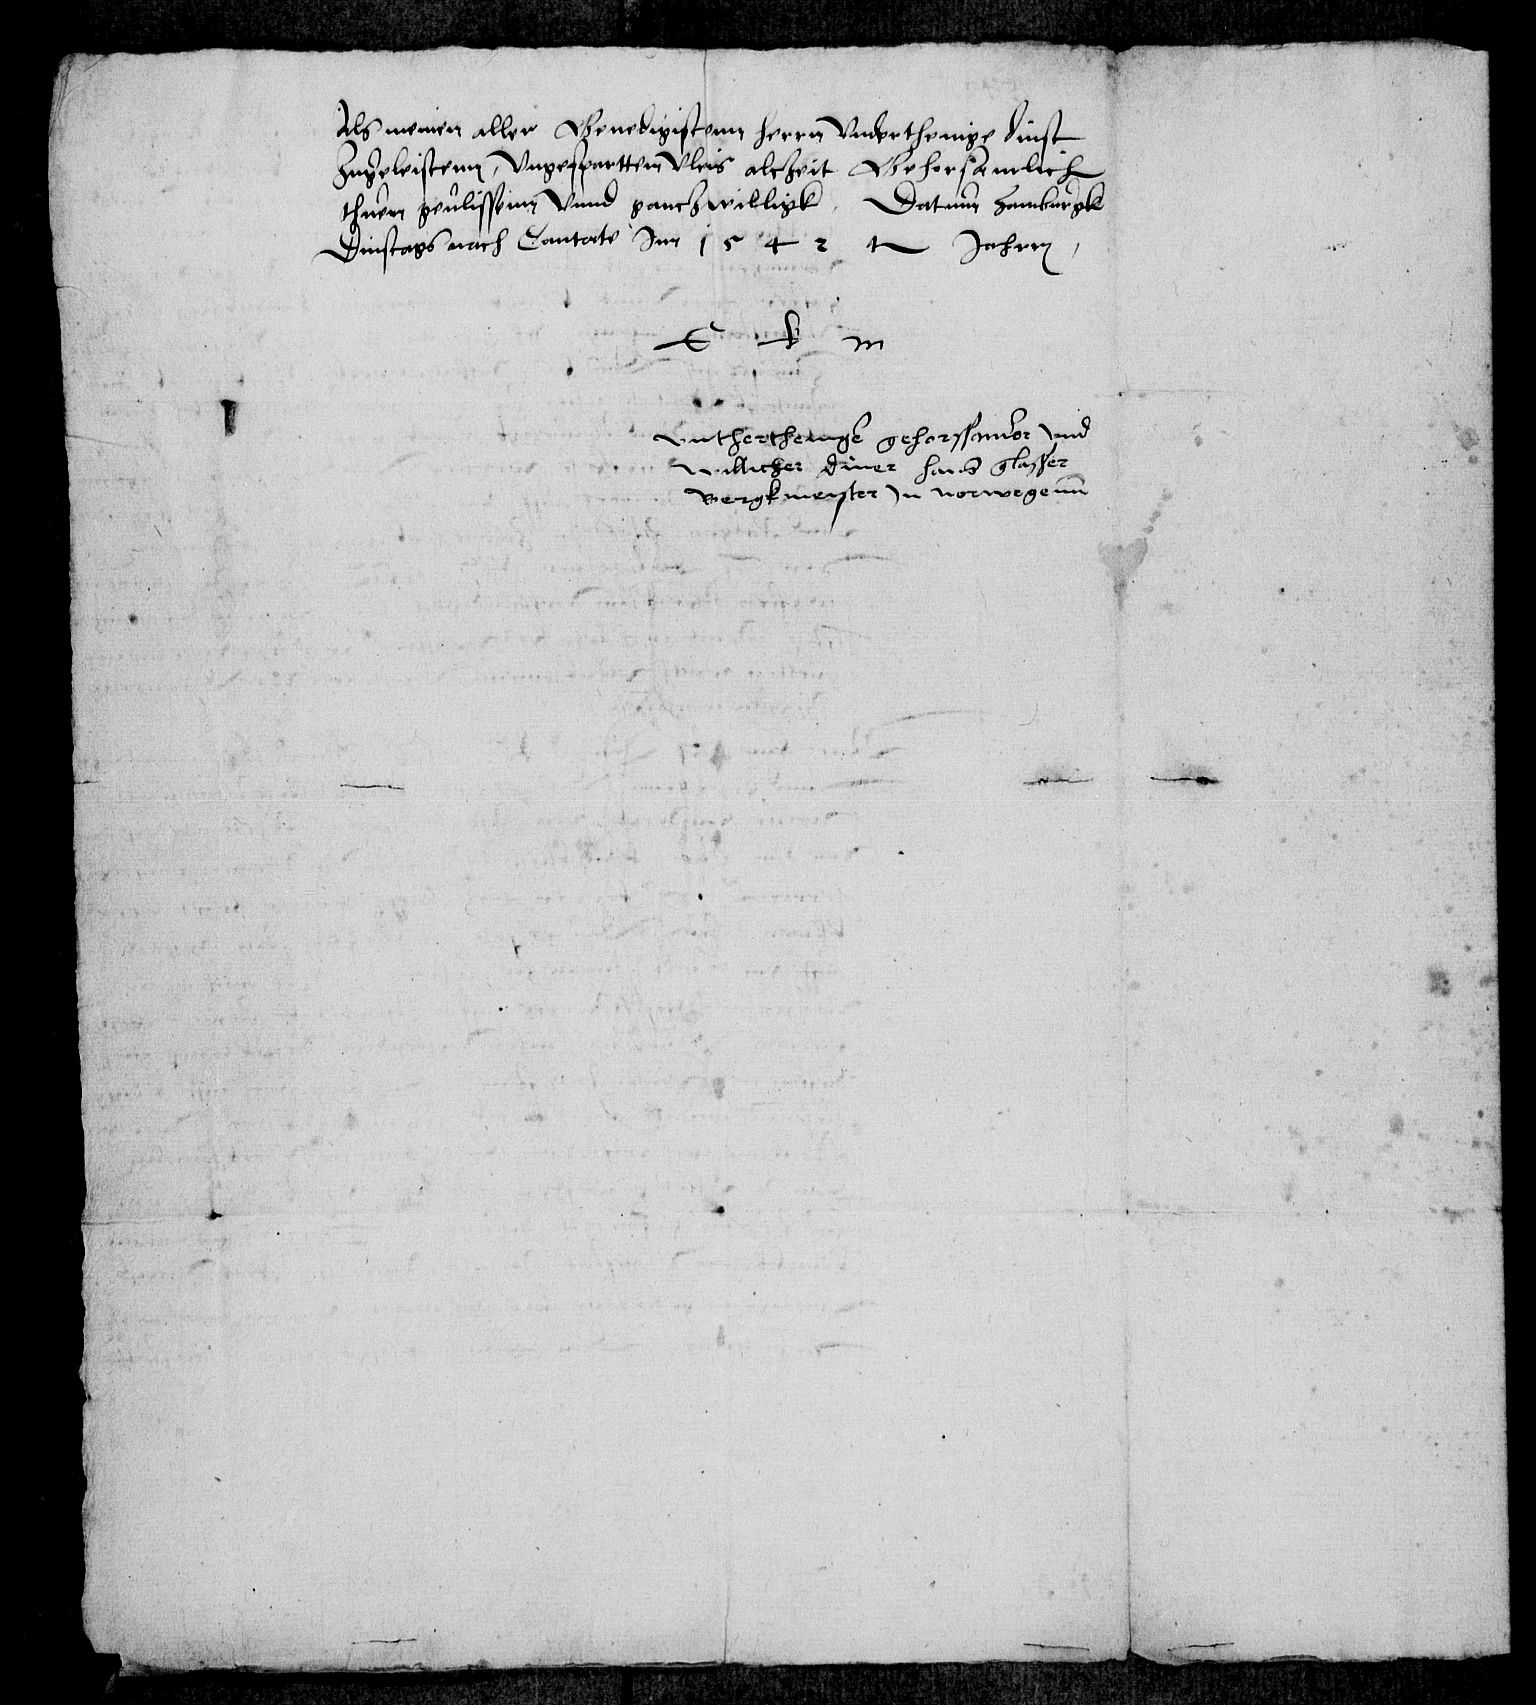 Als meinen aller Genedigistenn herrn Vnderthenige dinst
Zugeleistenn, Vngespartten Vleis alczeit Gehorsamlich
thuen geulissenn Vnnd gancz willigk. Datum Hamburgk
Dinstags nach Cantate Inn 1542 Jahren,
E k m
Vntherthenige gehorssamer vnd
willicher diner hans glaser
Bergkmeister In norwegenn